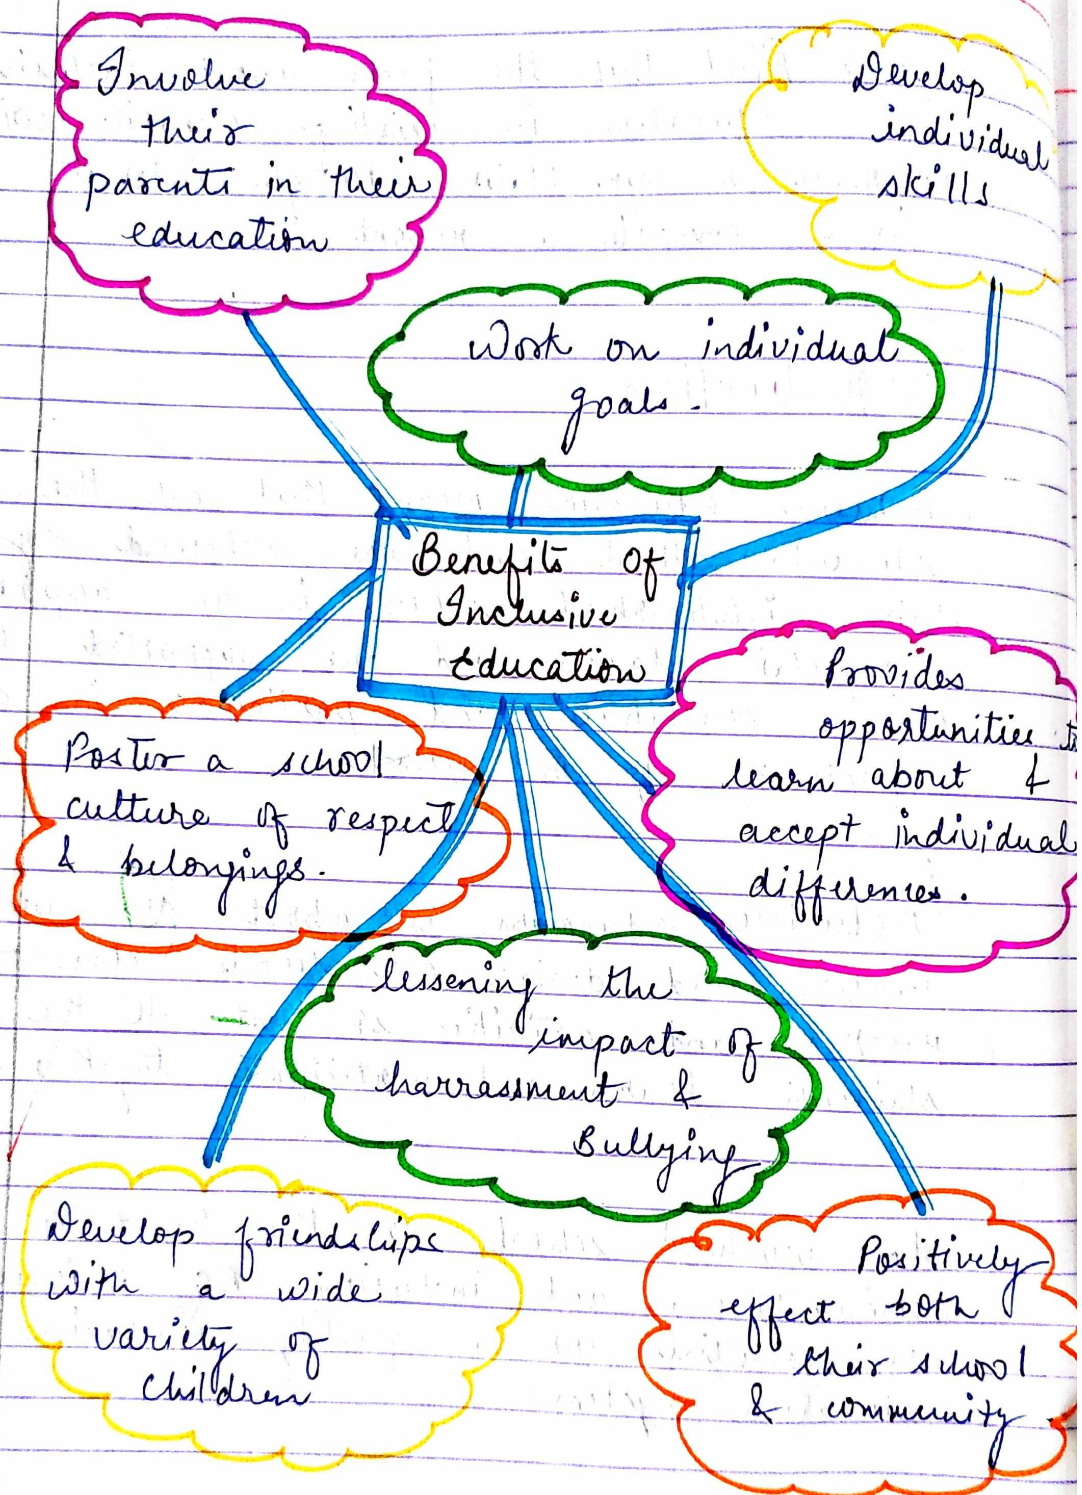 Involve
their
parents in their
education
Develop
individual
skills
Work on individual
goals.
Benefits Of
Inclusive
Education
Provides
opportunities to
learn about &
accept individual
differences.
Foster a school
culture of respect
& belongings.
lessening the
impact of
harrassment &
Bullying
Develop friendships
with a wide
variety of
children
Positively
effect both
their school
& community.